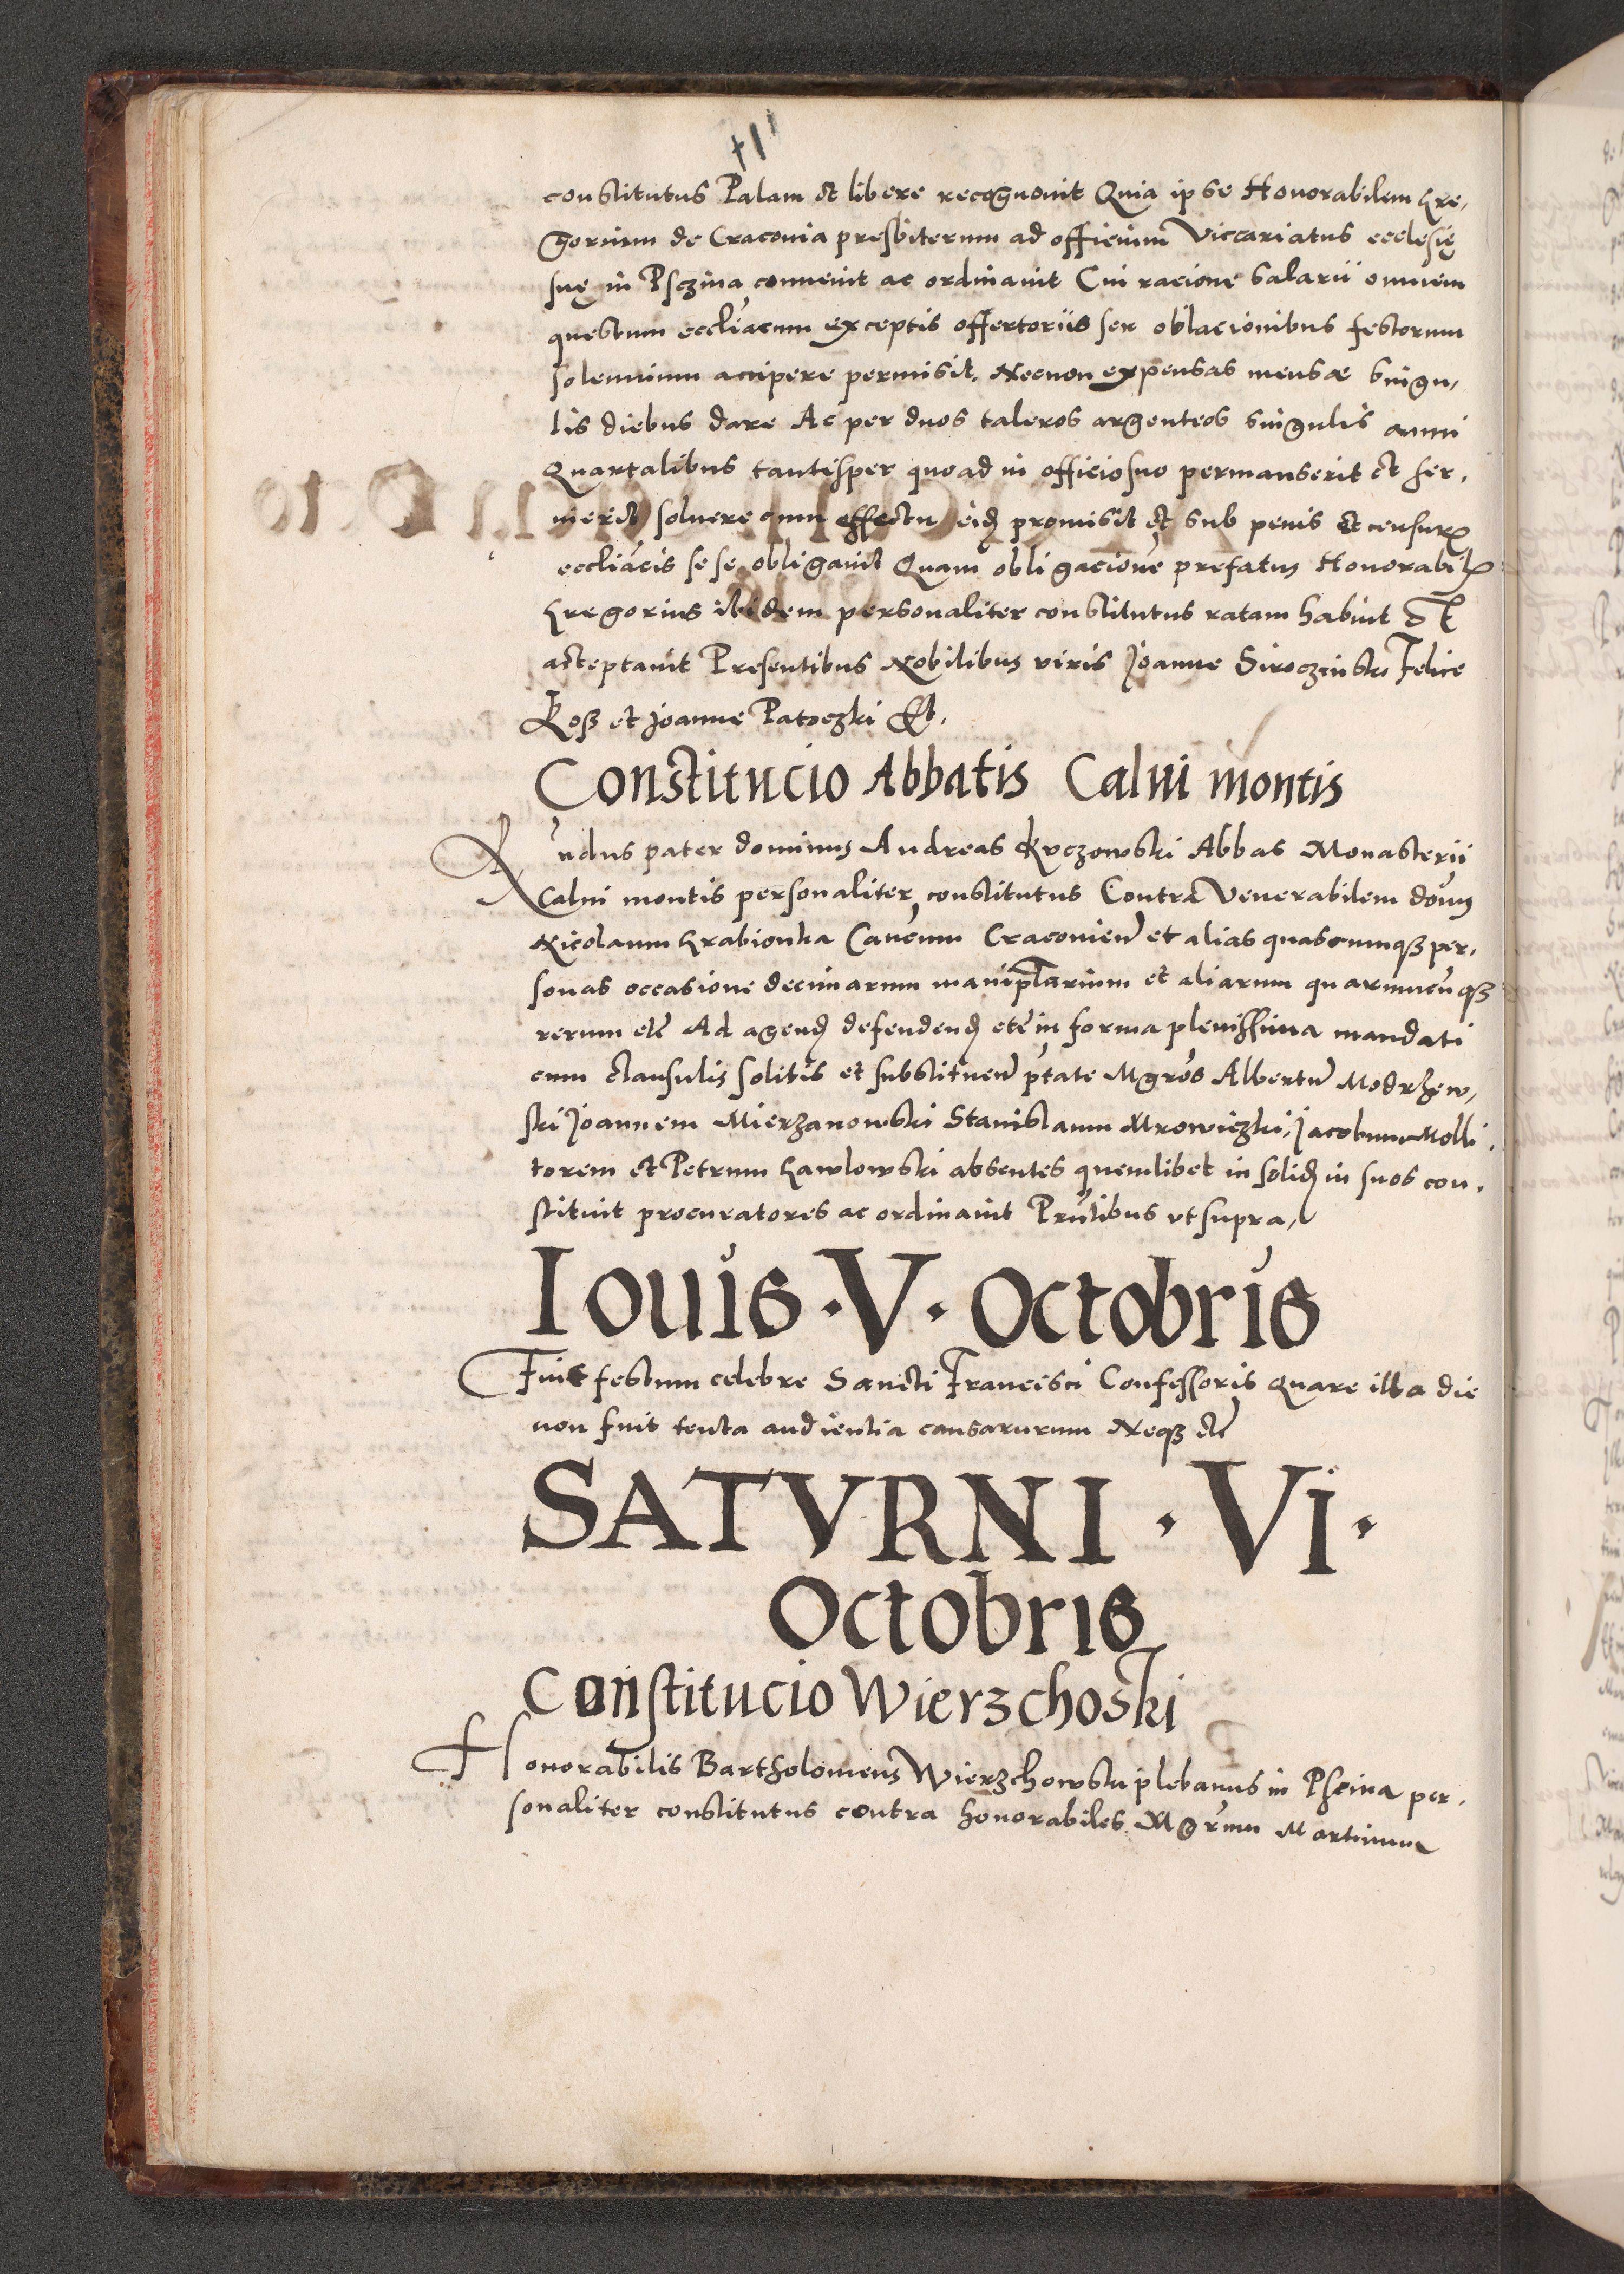 constitutus Palam et libere recognouit Quia ipse Honorabilem Gre,
gorium de Craconia presbiterum ad officium Viccariatus ecclesię
suę in Psczina conuenit ac ordinauit Cui racione salarii omnem
questum eccliacum exceptis offertoriis seu oblacionibus festorum
solemnium accipere permisit. Necnon expensas mensae singu,
lis diebus dare Ac per duos taleros argenteos singulis anni
Quartalibus tantisper quoad in officio suo permanserit et ser,
uierit soluere cum effectu eid promisit et sub penis et censur
eccliacis se se obligauit Quam obligacione prefatus Honorabil
Gregorius ibidem personaliter constitutus ratam habuit Et
acceptauit Presentibus Nobilibus viris Joanne Siroczinski Felice
Koß et Joanne Patoczki Et.
Constitucio Abbatis Calui montis
Rndus pater dominus Andreas Ryczowski Abbas Monasterii
Calui montis personaliter constitutus Contra Venerabilem dom
Nicolaum Grabionka Cancum Cracouien et alias quascumqȝ per,
sonas occasione decimarum maniplarium et aliarum quarumcuqȝ
rerum etc Ad agend defendend etc in forma plenissima mandati
cum clausulis solitis et substituen ptate Mgros Albertu Modrzew,
ski Joannem Mierzanowski Stanislaum Mrowiczki, Jacobum Molli,
torem et Petrum Gawlowski absentes quemlibet in solid in suos con,
stituit procuratores ac ordinauit Pntibus vt supra,
Iouis · V · Octobris
Fuit festum celebre Sancti Francisci Confessoris quare illa die
non fuit tenta audientia causarurum Neqȝ etc
SATVRNI · Vi ·
Octobris
Constitucio Wierzchoski
Honorabilis Bartholomeus Wierzchowski plebanus in Psczina per,
sonaliter constitutus contra honorabiles Mgrum Martinum